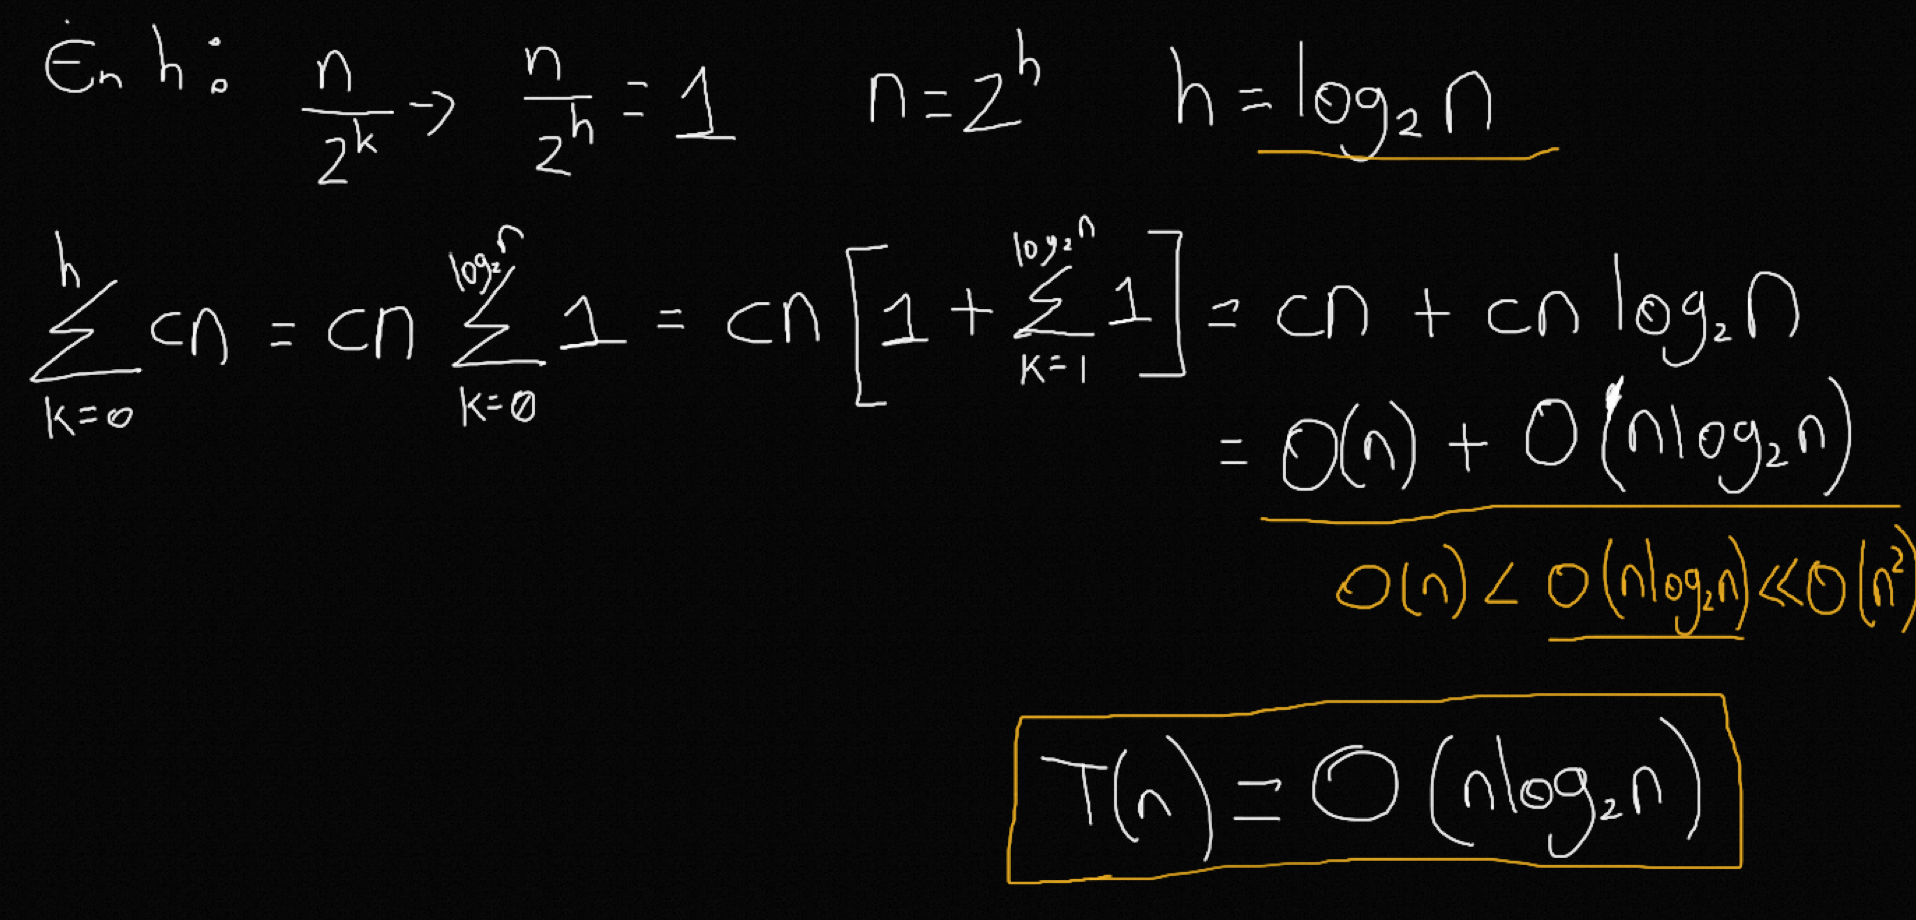 En h: n/2^k → n/2^h = 1 n = 2^h h = log₂ n
∑_{k=0}^{h} cn = cn ∑_{k=0}^{log₂ n} 1 = cn [1 + ∑_{k=1}^{log₂ n} 1] = cn + cn log₂ n
= O(n) + O(n log₂ n)
O(n) < O(n log₂ n) ≪ O(n²)
T(n) = O(n log₂ n)